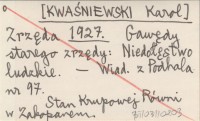 [KWAŚNIEWSKI Karol]
Zrzęda 1927. Gawędy
starego zrzędy: Niedołęstwo
ludzkie. – Wiad. z Podhala
nr 97.
Stan Krupowej Równi
w Zakopanem.